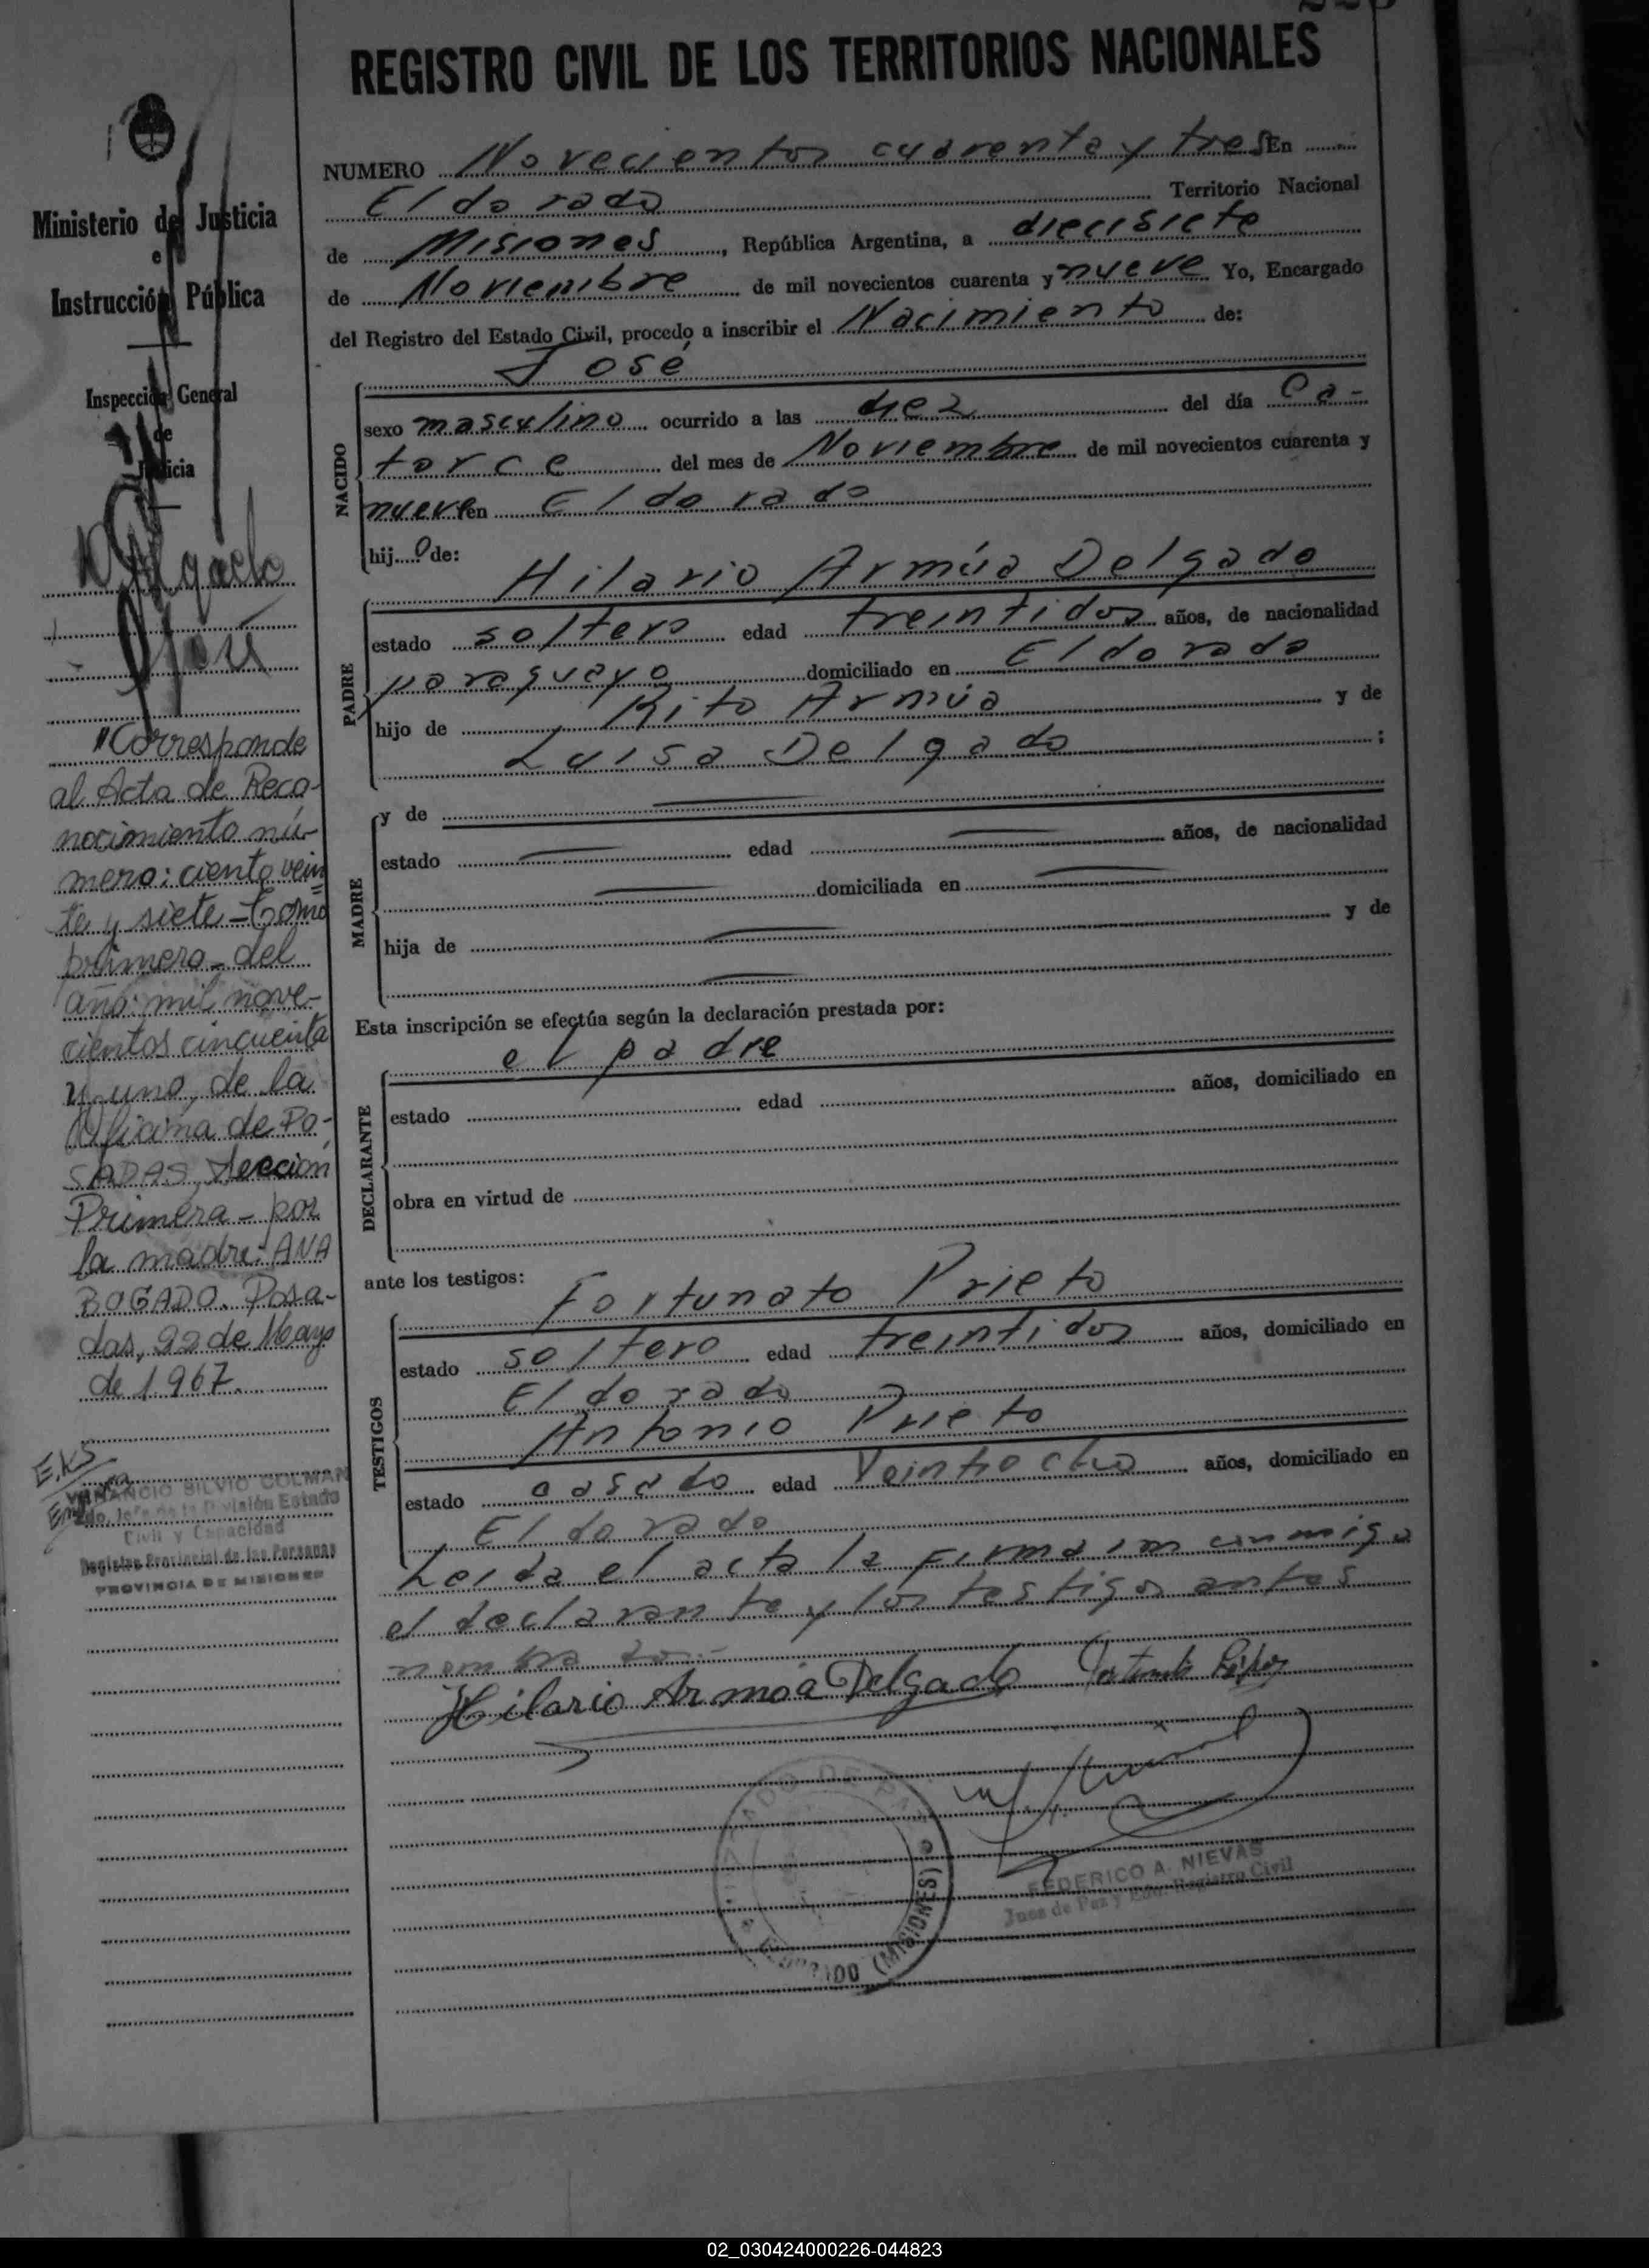 REGISTRO CIVIL DE LOS TERRITORIOS NACIONALES
Ministerio de Justicia
e
Instrucción Pública
Inspección General
de
Justicia
José
"Corresponde
al Acta de Reco-
nocimiento nú-
mero: ciento vein
te y siete - Tomo
primero - del
año: mil nove-
cientos cincuenta
y uno, de la
Oficina de Po-
SADAS, Sección
Primera - por
la madre: ANA
BOGADO. Posa-
das, 22 de Mayo
de 1967.
VENANCIO SILVIO COLMAN
2do. Jefe de la División Estado
Civil y Capacidad
Registro Provincial de las Personas
PROVINCIA DE MISIONES
NUMERO Novecientos cuarenta y tres En
Eldorado Territorio Nacional
de Misiones, República Argentina, a diecisiete
de Noviembre de mil novecientos cuarenta y nueve Yo, Encargado
del Registro del Estado Civil, procedo a inscribir el Nacimiento de:
José
NACIDO
sexo masculino ocurrido a las diez del día Ca-
torce del mes de Noviembre de mil novecientos cuarenta y
nueve en Eldorado
hij o de:
Hilario Armúa Delgado
PADRE
estado soltero edad treintidos años, de nacionalidad
paraguayo domiciliado en Eldorado
hijo de Rito Armúa y de
Luisa Delgado ;
MADRE
y de
estado edad años, de nacionalidad
domiciliada en
hija de y de
Esta inscripción se efectúa según la declaración prestada por:
el padre
DECLARANTE
estado edad años, domiciliado en
obra en virtud de
ante los testigos:
Fortunato Prieto
TESTIGOS
estado soltero edad treintidos años, domiciliado en
Eldorado
Antonio Prieto
estado casado edad Veintiocho años, domiciliado en
Eldorado
Leida el acta la firman conmigo
el declarante y los testigos antes
nombrados.-
Hilario Armoa Delgado
FEDERICO A. NIEVAS
Juez de Paz y Edo. Registro Civil
JUZGADO DE PAZ
ELDORADO (MISIONES)
02_030424000226-044823